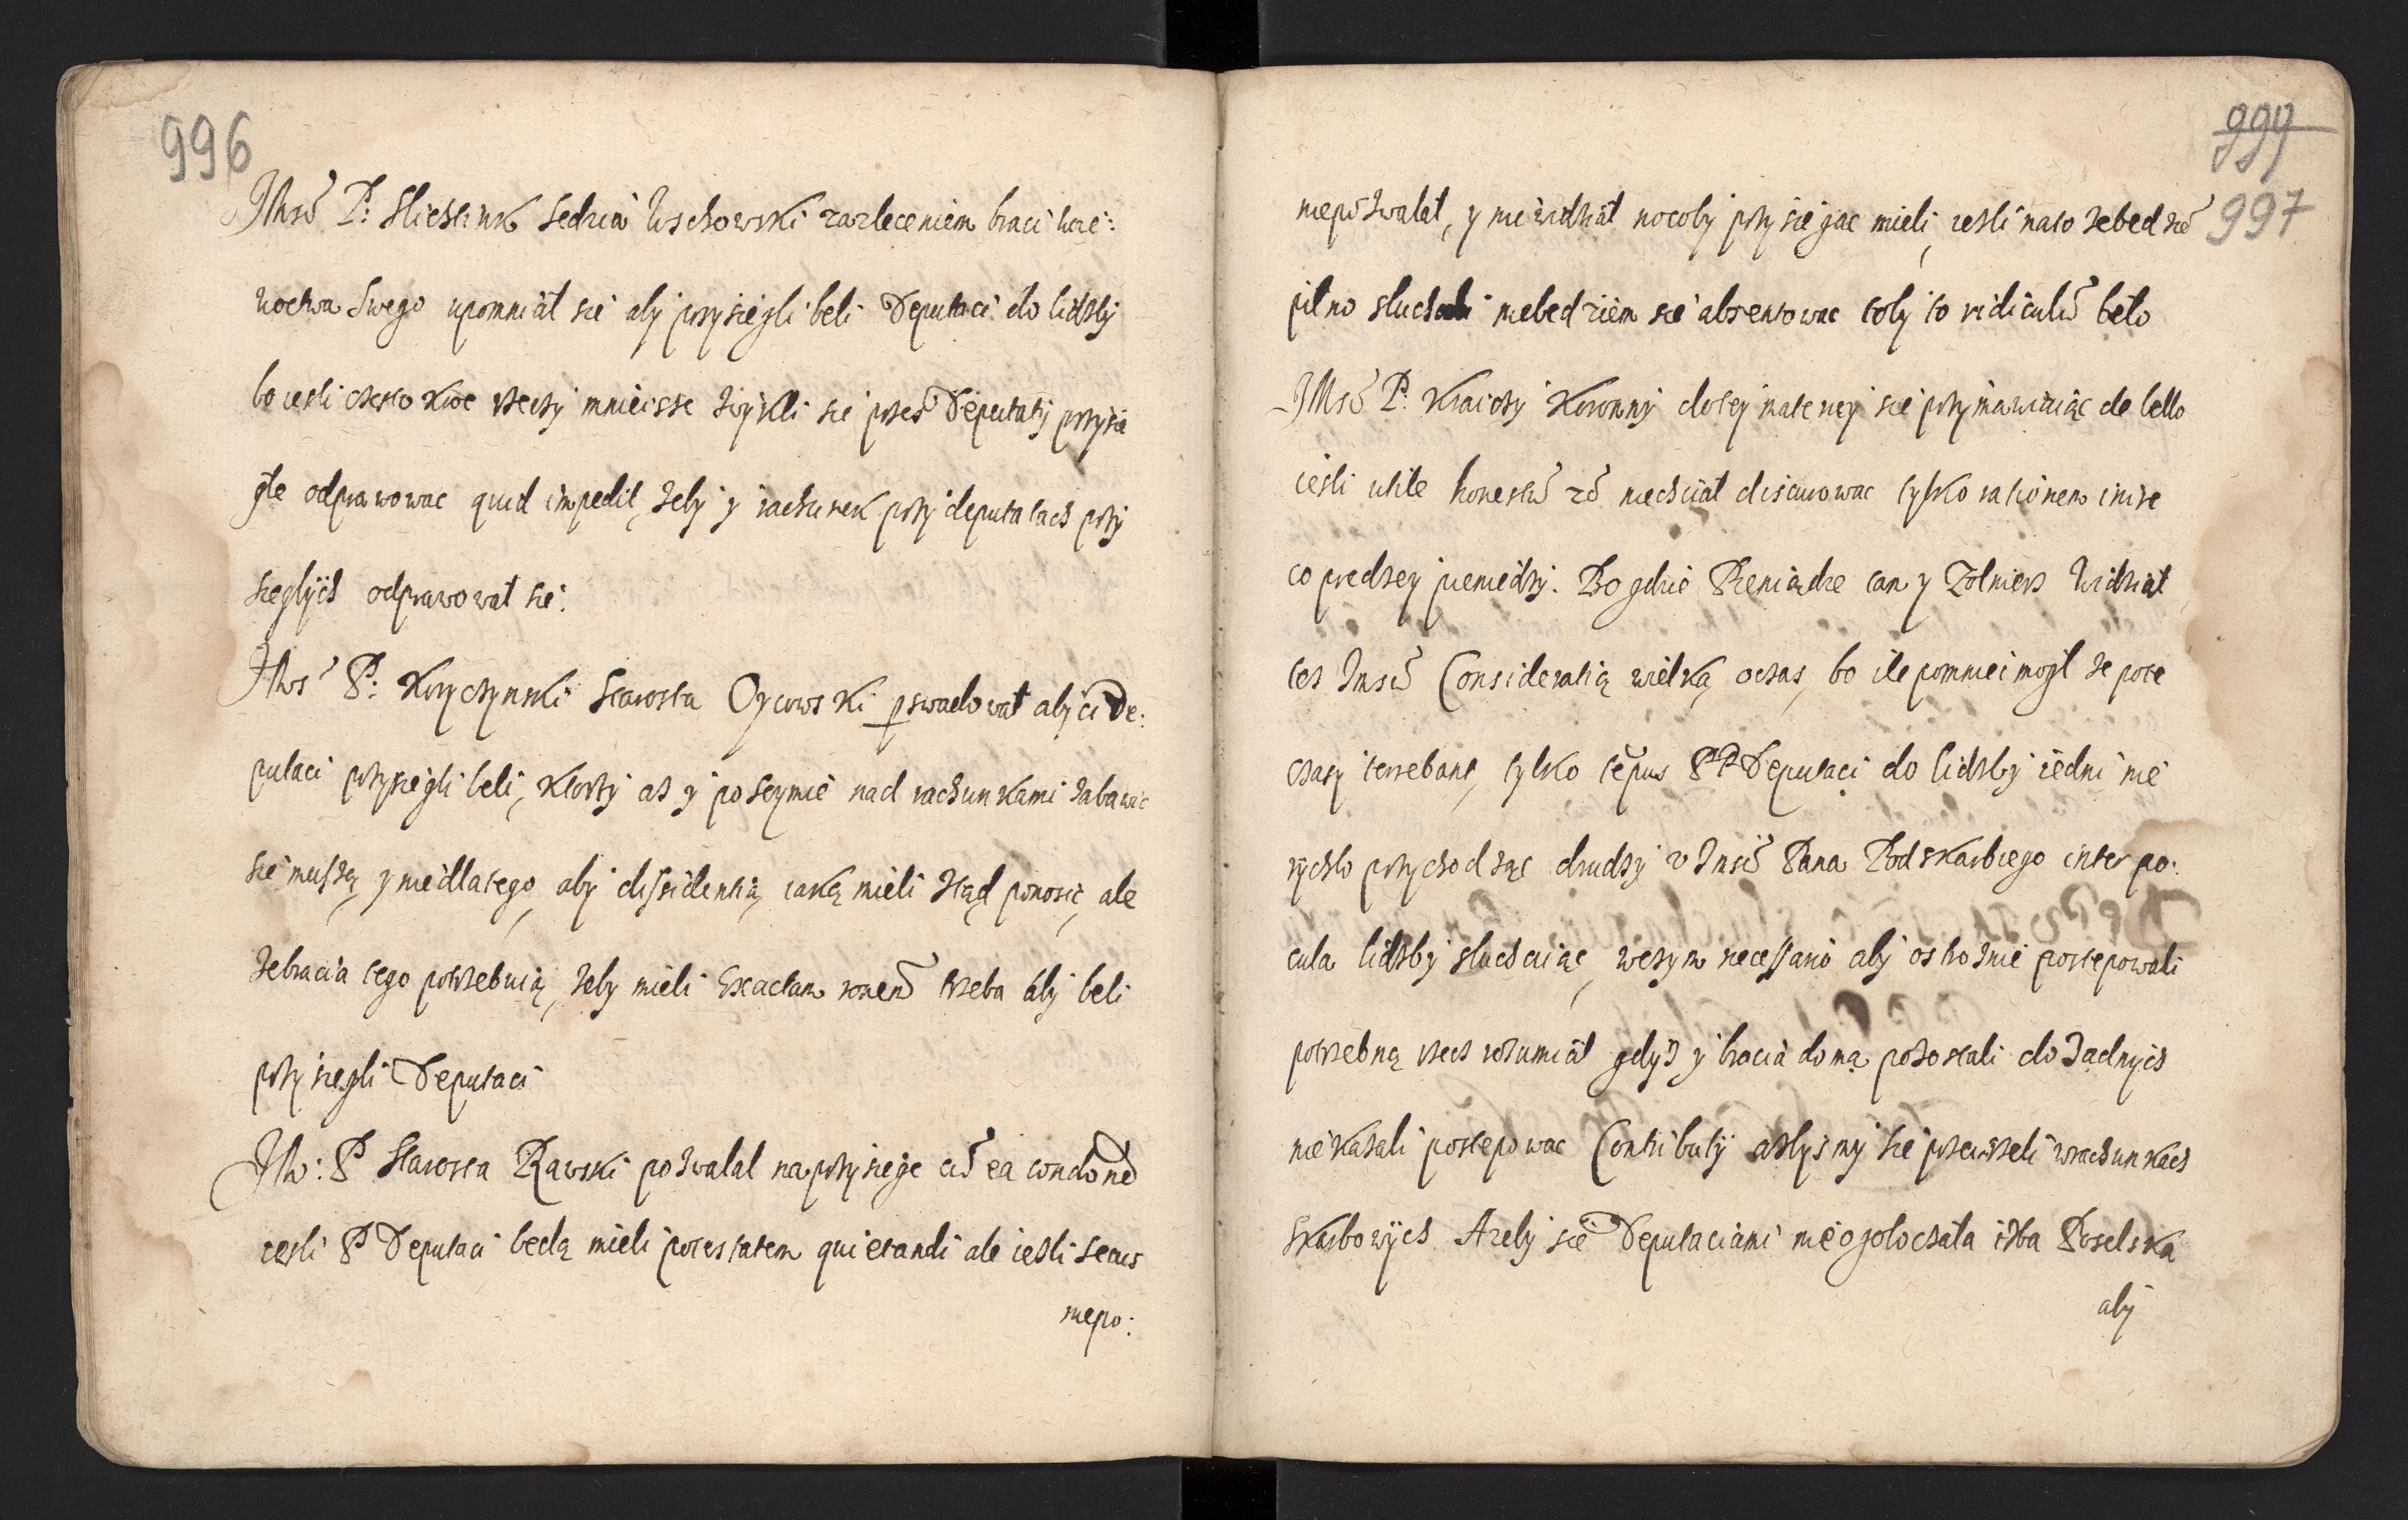 996
JMsc P: Slichtink Sedzia Wschowski zazleceniem braci woie:
wodtwa Swego upomniał sie aby przysiegli beli Deputaci do lidzby
bo iesli czesto kroc rzeczy mnieisze zwykli sie przes Deputaty przysie
głe odprawowac quid impedit, żeby y rachunek przy deputatach przy
sieglych odprawował sie.
JMsc P: Koryczynski Starosta Oycowski pswadował aby ci De:
putaci przysiegli beli, Ktorzy asz y po seymie nad rachunkami zabawic
sie muszą, y niedlatego, aby dissidentią iaką mieli ztąd ponosic, ale
ze bracia tego potrzebuią, żeby mieli Exactam ronem trzeba aby beli
przysiegli Deputaci
JM: P Starosta Rawski pozwalal na przysiege cum ea condone
iesli P Deputaci bedą mieli potestatem quietandi ale iesli secus
niepo:
999
997
niepozwalał, y niewidział nacoby przysiegac mieli, iesli nato ze bedzie
pilno słuchali niebedziem sie absentowac toby to ridiculum beło
JMsc P. Kraiczy Koronny do tey materiey sie przymawiaiąc de bello
iesli utile honestum nie chciał discurowac tylko rationem inire
co predzey pieniedzy. Bo gdzie Pieniądze tam y Zołnierz Widział
tez Jmsc Consideratią wielką o czas, bo ile pomniei mogł ze pore
czasy terrebant, tylko tepus PP Deputaci do lidzby iedni nie
rychło przychodząc drudzy v Jmsc Pana Podskarbiego inter po:
cula lidzby słuchaiąc, wczym necessario aby ostroznie postepowali
potrzebną rzecz rozumiał gdyż y bracia doma pozostali do żadnych
nie kazali postepowac Contributy azbysmy sie przeirzeli w rachunkach
Skarbowych A zeby sie Deputaciami nie ogołociała izba Poselska
aby